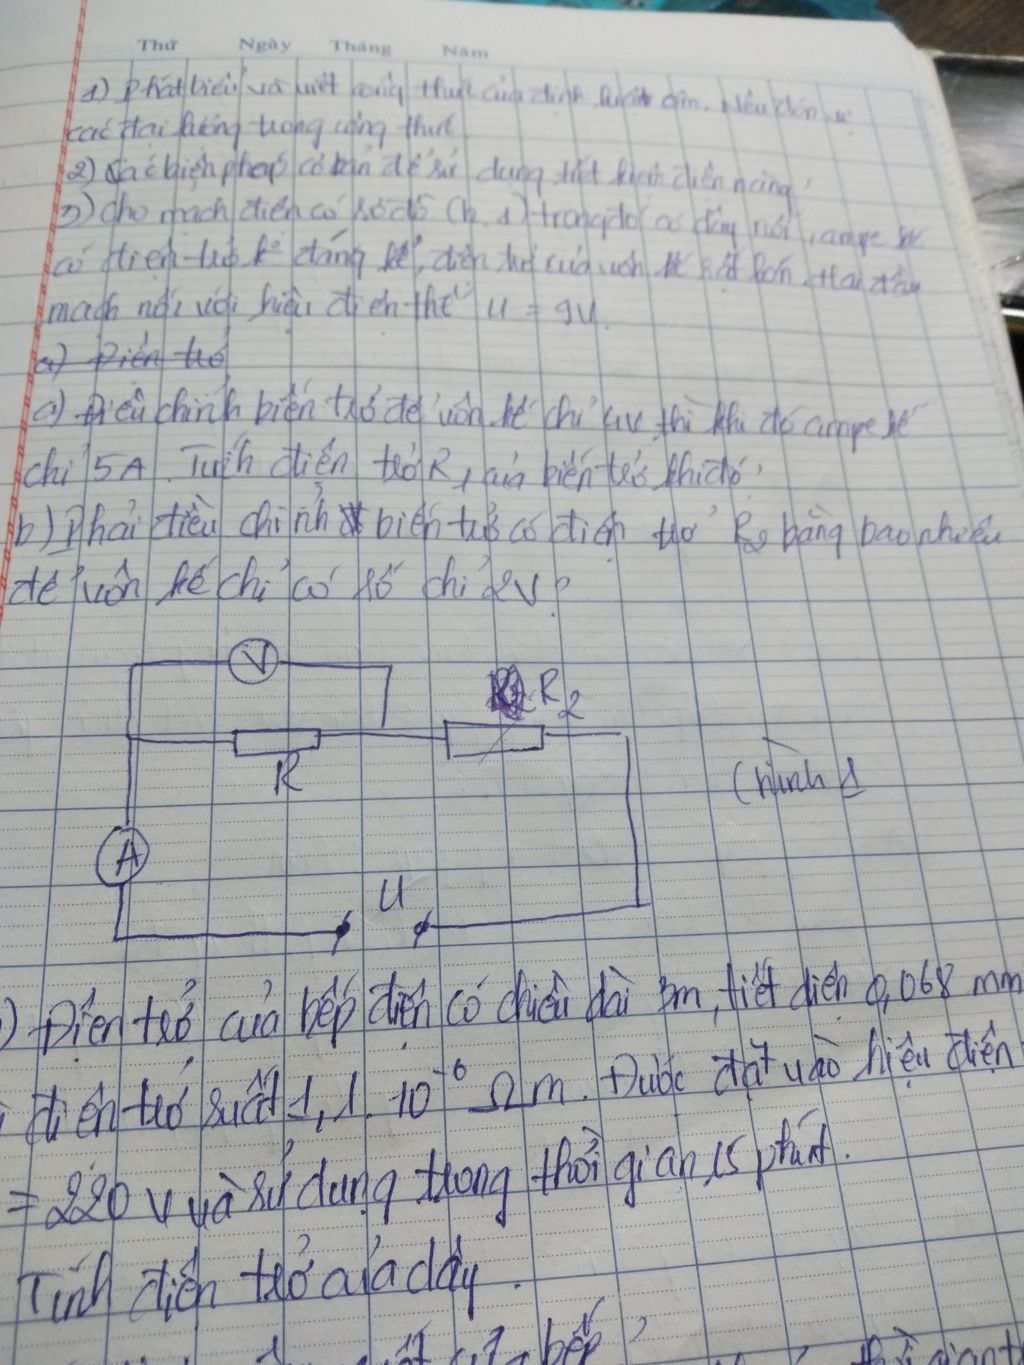 Thứ Ngày Tháng Năm
1) Phát biểu và viết công thức của định luật ôm. Nêu đơn vị
các đại lượng trong công thức
2) Các biện pháp cơ bản để sử dụng tiết kiệm điện năng?
3) Cho mạch điện có sơ đồ (h.1) trong đó có dây nối, ampe kế
có điện trở k đáng kể, điện trở của vôn kế rất lớn. Hai đầu
mạch nối với hiệu điện thế U = 9V.
a) Điện trở
a) Điều chỉnh biến trở để vôn kế chỉ 4V thì khi đó ampe kế
chỉ 5A. Tính điện trở R1 của biến trở khi đó?
b) Phải điều chỉnh biến trở có điện trở R2 bằng bao nhiêu
để vôn kế chỉ có số chỉ 2V?
V
R2
R
(hình 1
A
U
) Điện trở của bếp điện có chiều dài 3m, tiết diện 0,068 mm
điện trở suất 1,1.10-6 Ωm. Được đặt vào hiệu điện
= 220 V và sử dụng trong thời gian 15 phút.
Tính điện trở của dây.
bếp